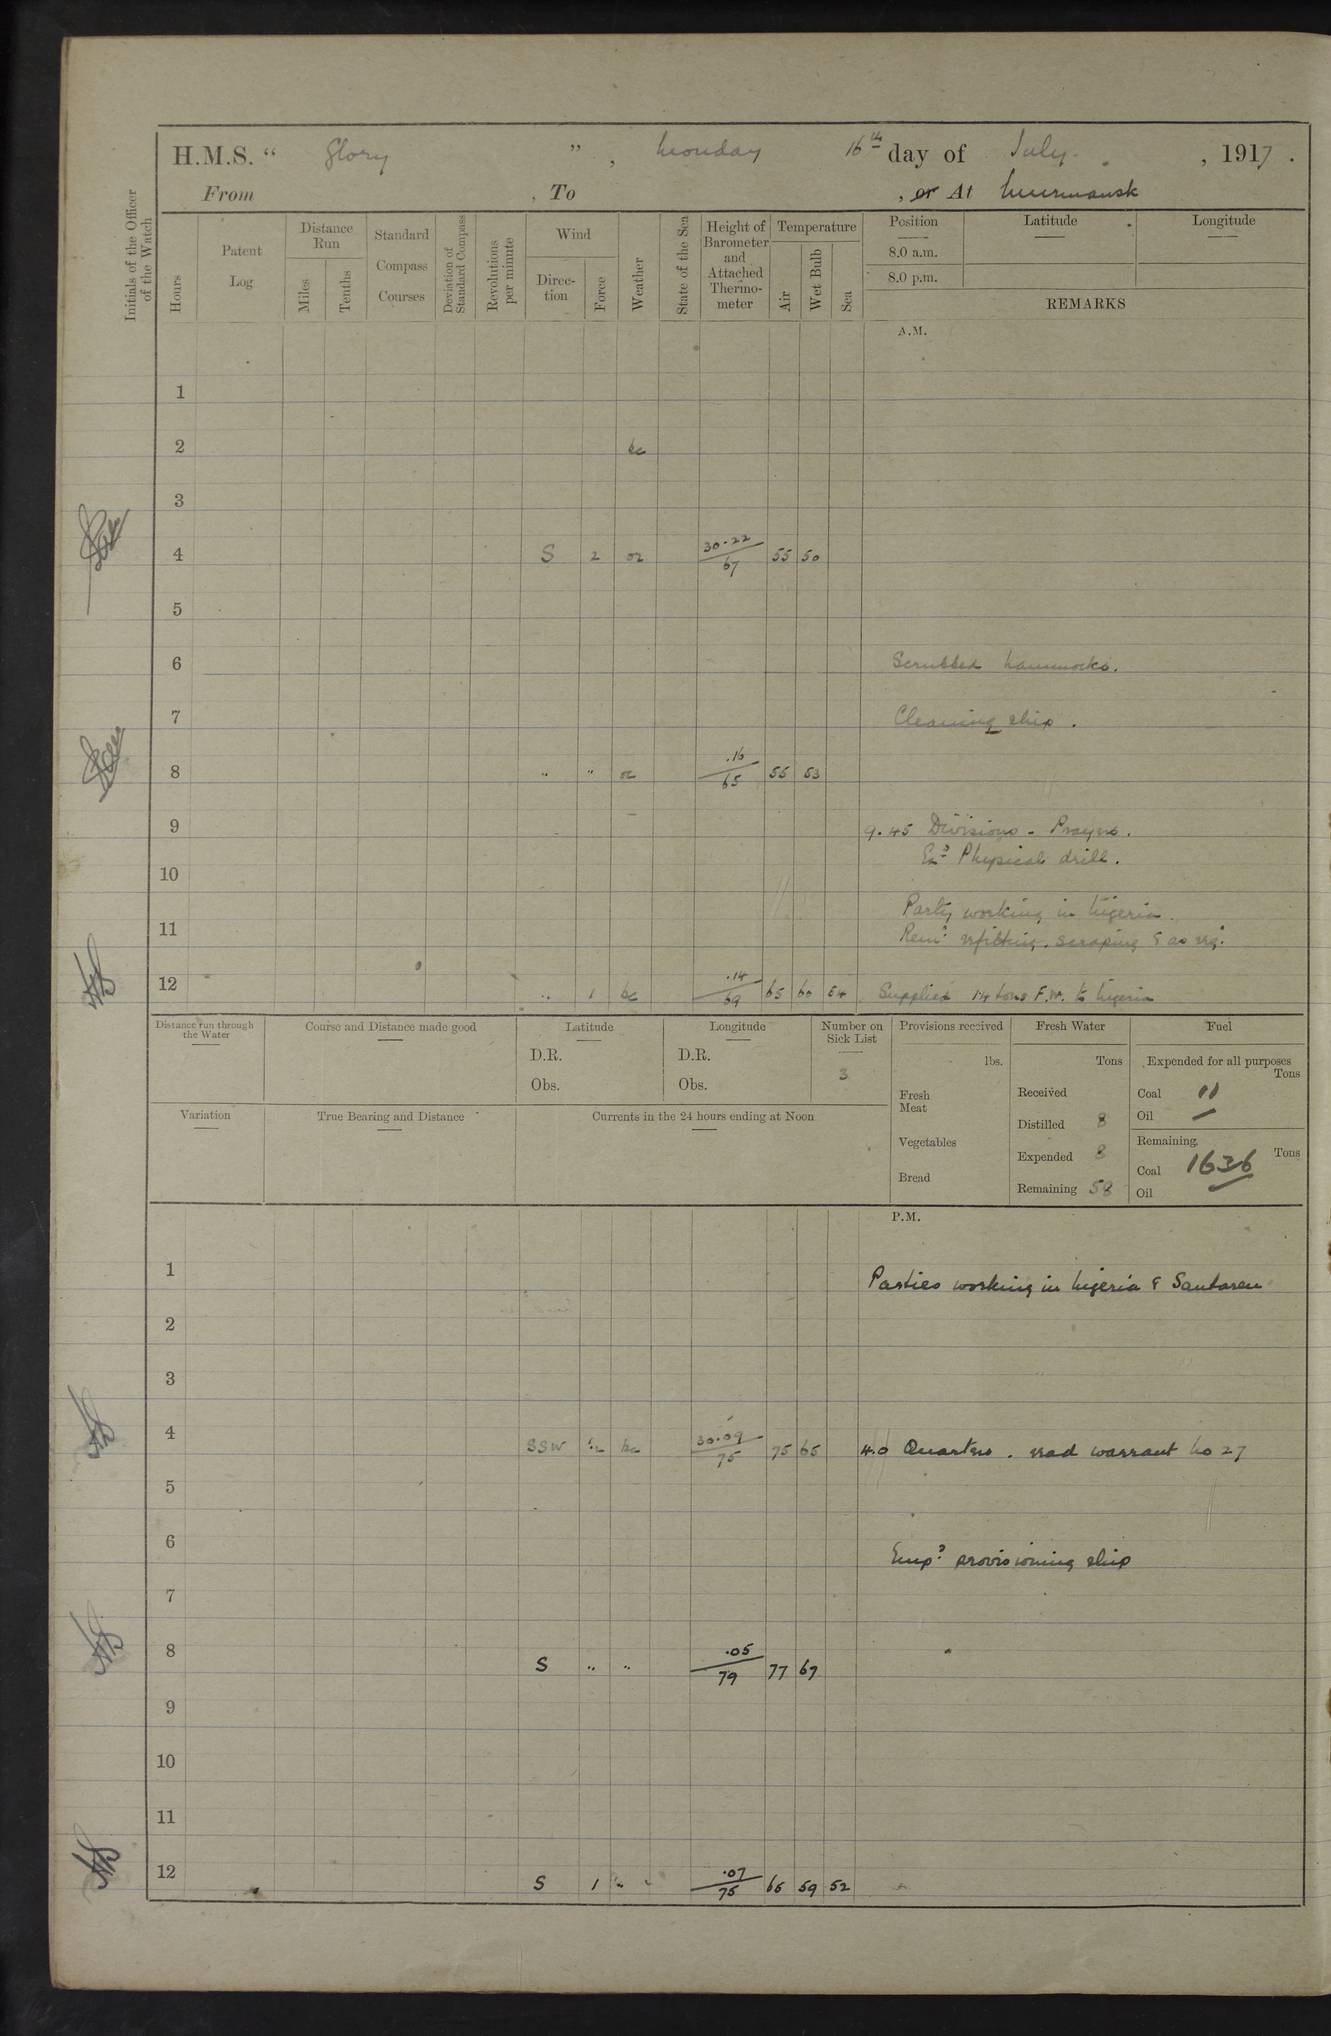 H.M.S. “ Glory ” , Monday 16th day of July , 1917 .
From , To , or At Murmansk
Initials of the Officer of the Watch
Hours
Patent Log
Distance Run
Miles
Tenths
Standard Compass Courses
Deviation of Standard Compass
Revolutions per minute
Wind
Direction
Force
Weather
State of the Sea
Height of Barometer and Attached Thermometer
Temperature
Air
Wet Bulb
Sea
Position
Latitude
Longitude
8.0 a.m.
8.0 p.m.
REMARKS
A.M.
1
2 bc
3
4 S 2 oz 30.22 67 55 50
5
6 Scrubbed hammocks.
7 Cleaning ship .
8 " " oc .16 65 55 53
9 9.45 Divisions - Prayers.
Exd Physical drill.
10
Party working in Nigeria.
11 Remr refitting, scraping & as req.
12 " 1 bc .14 69 65 60 54 Supplied 14 tons F.W. to Nigeria
Distance run through the Water
Course and Distance made good
Latitude
D.R.
Obs.
Longitude
D.R.
Obs.
Number on Sick List
3
Provisions received
lbs.
Fresh Meat
Vegetables
Bread
Fresh Water
Tons
Received
Distilled 8
Expended 8
Remaining 58
Fuel
Expended for all purposes
Tons
Coal 11
Oil —
Remaining
Tons
Coal 1636
Oil —
Variation
True Bearing and Distance
Currents in the 24 hours ending at Noon
P.M.
1 Parties working in Nigeria & Santaren
2
3
4 SSW 1-2 bc 30.09 75 75 65 4.0 Quarters . read warrant No 27
5
6 Empd provisioning ship
7
8 S " " .05 79 77 67
9
10
11
12 S 1 " .07 75 65 59 52